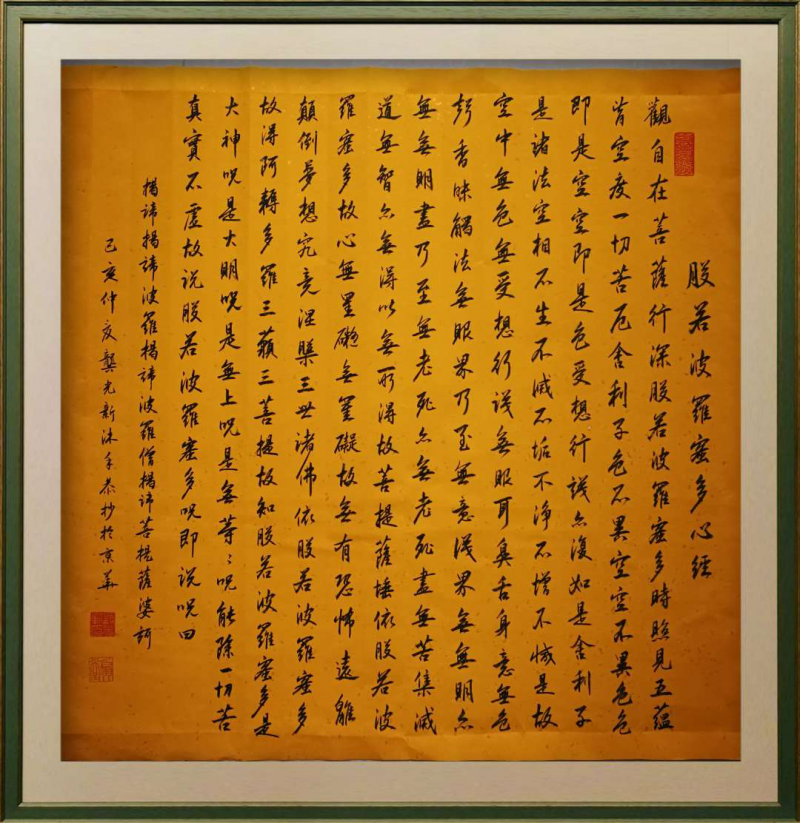 般若波羅蜜多心經
觀自在菩薩行深般若波羅蜜多時照見五蘊
皆空度一切苦厄舍利子色不異空空不異色色
即是空空即是色受想行識亦復如是舍利子
是諸法空相不生不滅不垢不淨不增不減是故
空中無色無受想行識無眼耳鼻舌身意無色
聲香味觸法無眼界乃至無意識界無無明亦
無無明盡乃至無老死亦無老死盡無苦集滅
道無智亦無得以無所得故菩提薩埵依般若波
羅蜜多故心無罣礙無罣礙故無有恐怖遠離
顛倒夢想究竟涅槃三世諸佛依般若波羅蜜多
故得阿耨多羅三藐三菩提故知般若波羅蜜多是
大神咒是大明咒是無上咒是無等等咒能除一切苦
真實不虛故說般若波羅蜜多咒即說咒曰
揭諦揭諦波羅揭諦波羅僧揭諦菩提薩婆訶
己亥仲夏龔光新沐手恭抄於京華